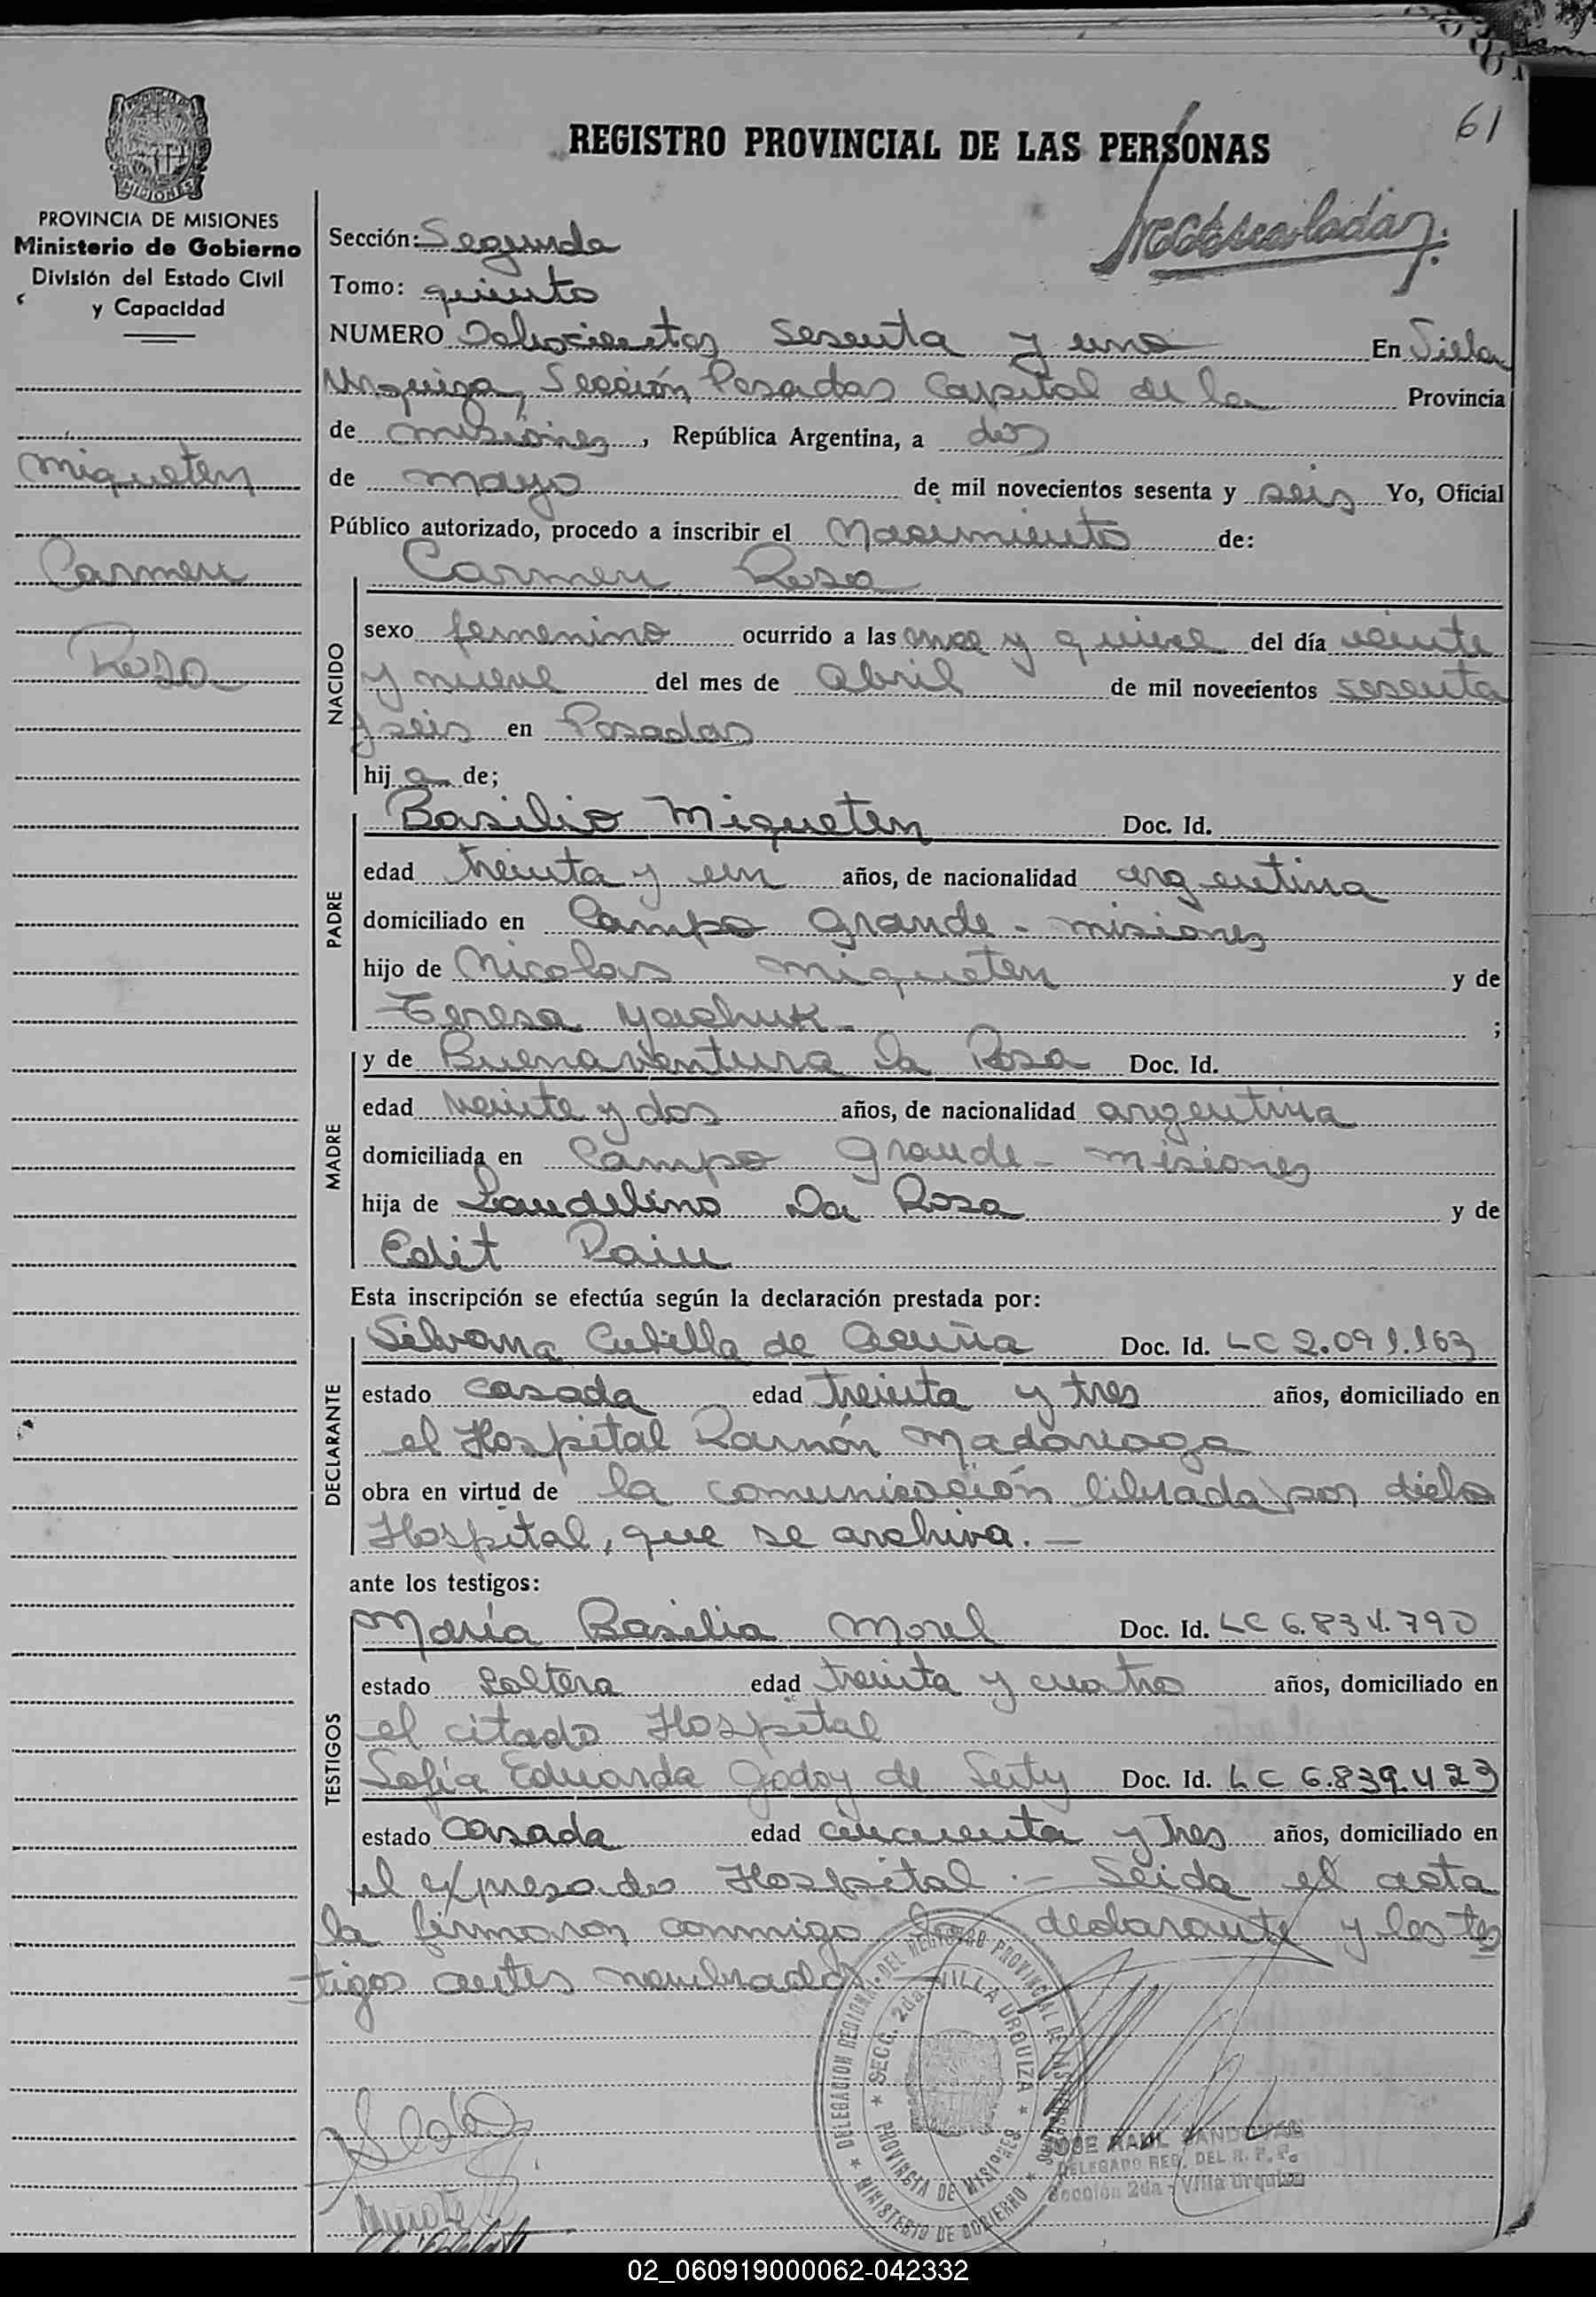 61
REGISTRO PROVINCIAL DE LAS PERSONAS
MISIONES
PROVINCIA DE MISIONES
Ministerio de Gobierno
División del Estado Civil
y Capacidad
Miqueten
Carmen
Rosa
Sección: Segunda
Tomo: quinto
NUMERO Ochocientos sesenta y uno En Villa
Urquiza, Sección Posadas Capital de la Provincia
de misiones, República Argentina, a dos
de mayo de mil novecientos sesenta y seis Yo, Oficial
Público autorizado, procedo a inscribir el Nacimiento de:
Carmen Rosa
NACIDO
sexo femenino ocurrido a las once y quince del día veinte
y nueve del mes de Abril de mil novecientos sesenta
y seis en Posadas
hij a de;
PADRE
Basilio Miqueten Doc. Id.
edad treinta y un años, de nacionalidad argentina
domiciliado en Campo Grande - misiones
hijo de Nicolas Miqueten y de
Teresa Yachuk ;
MADRE
y de Buenaventura Da Rosa Doc. Id.
edad veinte y dos años, de nacionalidad argentina
domiciliada en Campo Grande - misiones
hija de Laudelino Da Rosa y de
Edit
Esta inscripción se efectúa según la declaración prestada por:
DECLARANTE
Silvana Cubilla de Acuña Doc. Id. LC 2.091.163
estado casada edad treinta y tres años, domiciliado en
el Hospital Ramón Madariaga
obra en virtud de la comunicación librada por dicho
Hospital, que se archiva. -
ante los testigos:
TESTIGOS
María Basilia Morel Doc. Id. LC 6.834.790
estado soltera edad treinta y cuatro años, domiciliado en
el citado Hospital
Sofía Eduarda Godoy de Doc. Id. LC 6.839.423
estado casada edad cincuenta y tres años, domiciliado en
el expresado Hospital. - Leida el acta
la firmaron conmigo la declarante y los tes
tigos antes nombrados
DELEGACION REGIONAL DEL REGISTRO PROVINCIAL DE LAS PERSONAS
SECC. 2da. VILLA URQUIZA
PROVINCIA DE MISIONES
MINISTERIO DE GOBIERNO
JOSE RAUL SANDOVAL
DELEGADO REG. DEL R. P. P.
Sección 2da - Villa Urquiza
02_060919000062-042332